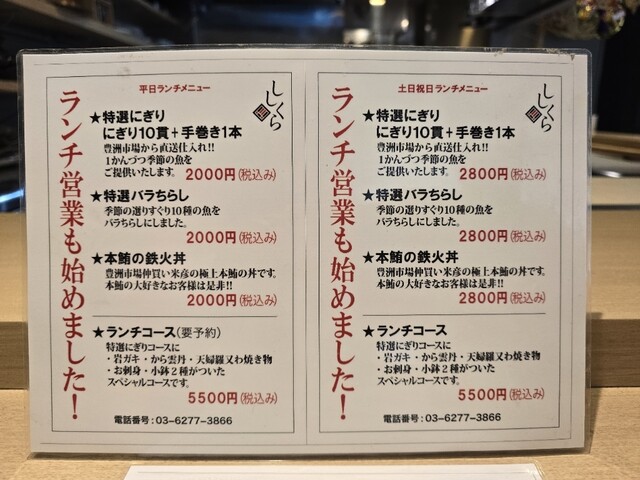 平日ランチメニュー
ししくら
ランチ営業も始めました!
★特選にぎり
にぎり10貫+手巻き1本
豊洲市場から直送仕入れ!!
1かんづつ季節の魚を
ご提供いたします。 2000円(税込み)
★特選バラちらし
季節の選りすぐり10種の魚を
バラちらしにしました。
2000円(税込み)
★本鮪の鉄火丼
豊洲市場仲買い米彦の極上本鮪の丼です。
本鮪の大好きなお客様は是非!!
2000円(税込み)
★ランチコース(要予約)
特選にぎりコースに
・岩ガキ・から雲丹・天婦羅又わ焼き物
・お刺身・小鉢2種がついた
スペシャルコースです。
5500円(税込み)
電話番号:03-6277-3866
土日祝日ランチメニュー
ししくら
ランチ営業も始めました!
★特選にぎり
にぎり10貫+手巻き1本
豊洲市場から直送仕入れ!!
1かんづつ季節の魚を
ご提供いたします。 2800円(税込み)
★特選バラちらし
季節の選りすぐり10種の魚を
バラちらしにしました。
2800円(税込み)
★本鮪の鉄火丼
豊洲市場仲買い米彦の極上本鮪の丼です。
本鮪の大好きなお客様は是非!!
2800円(税込み)
★ランチコース
特選にぎりコースに
・岩ガキ・から雲丹・天婦羅又わ焼き物
・お刺身・小鉢2種がついた
スペシャルコースです。
5500円(税込み)
電話番号:03-6277-3866